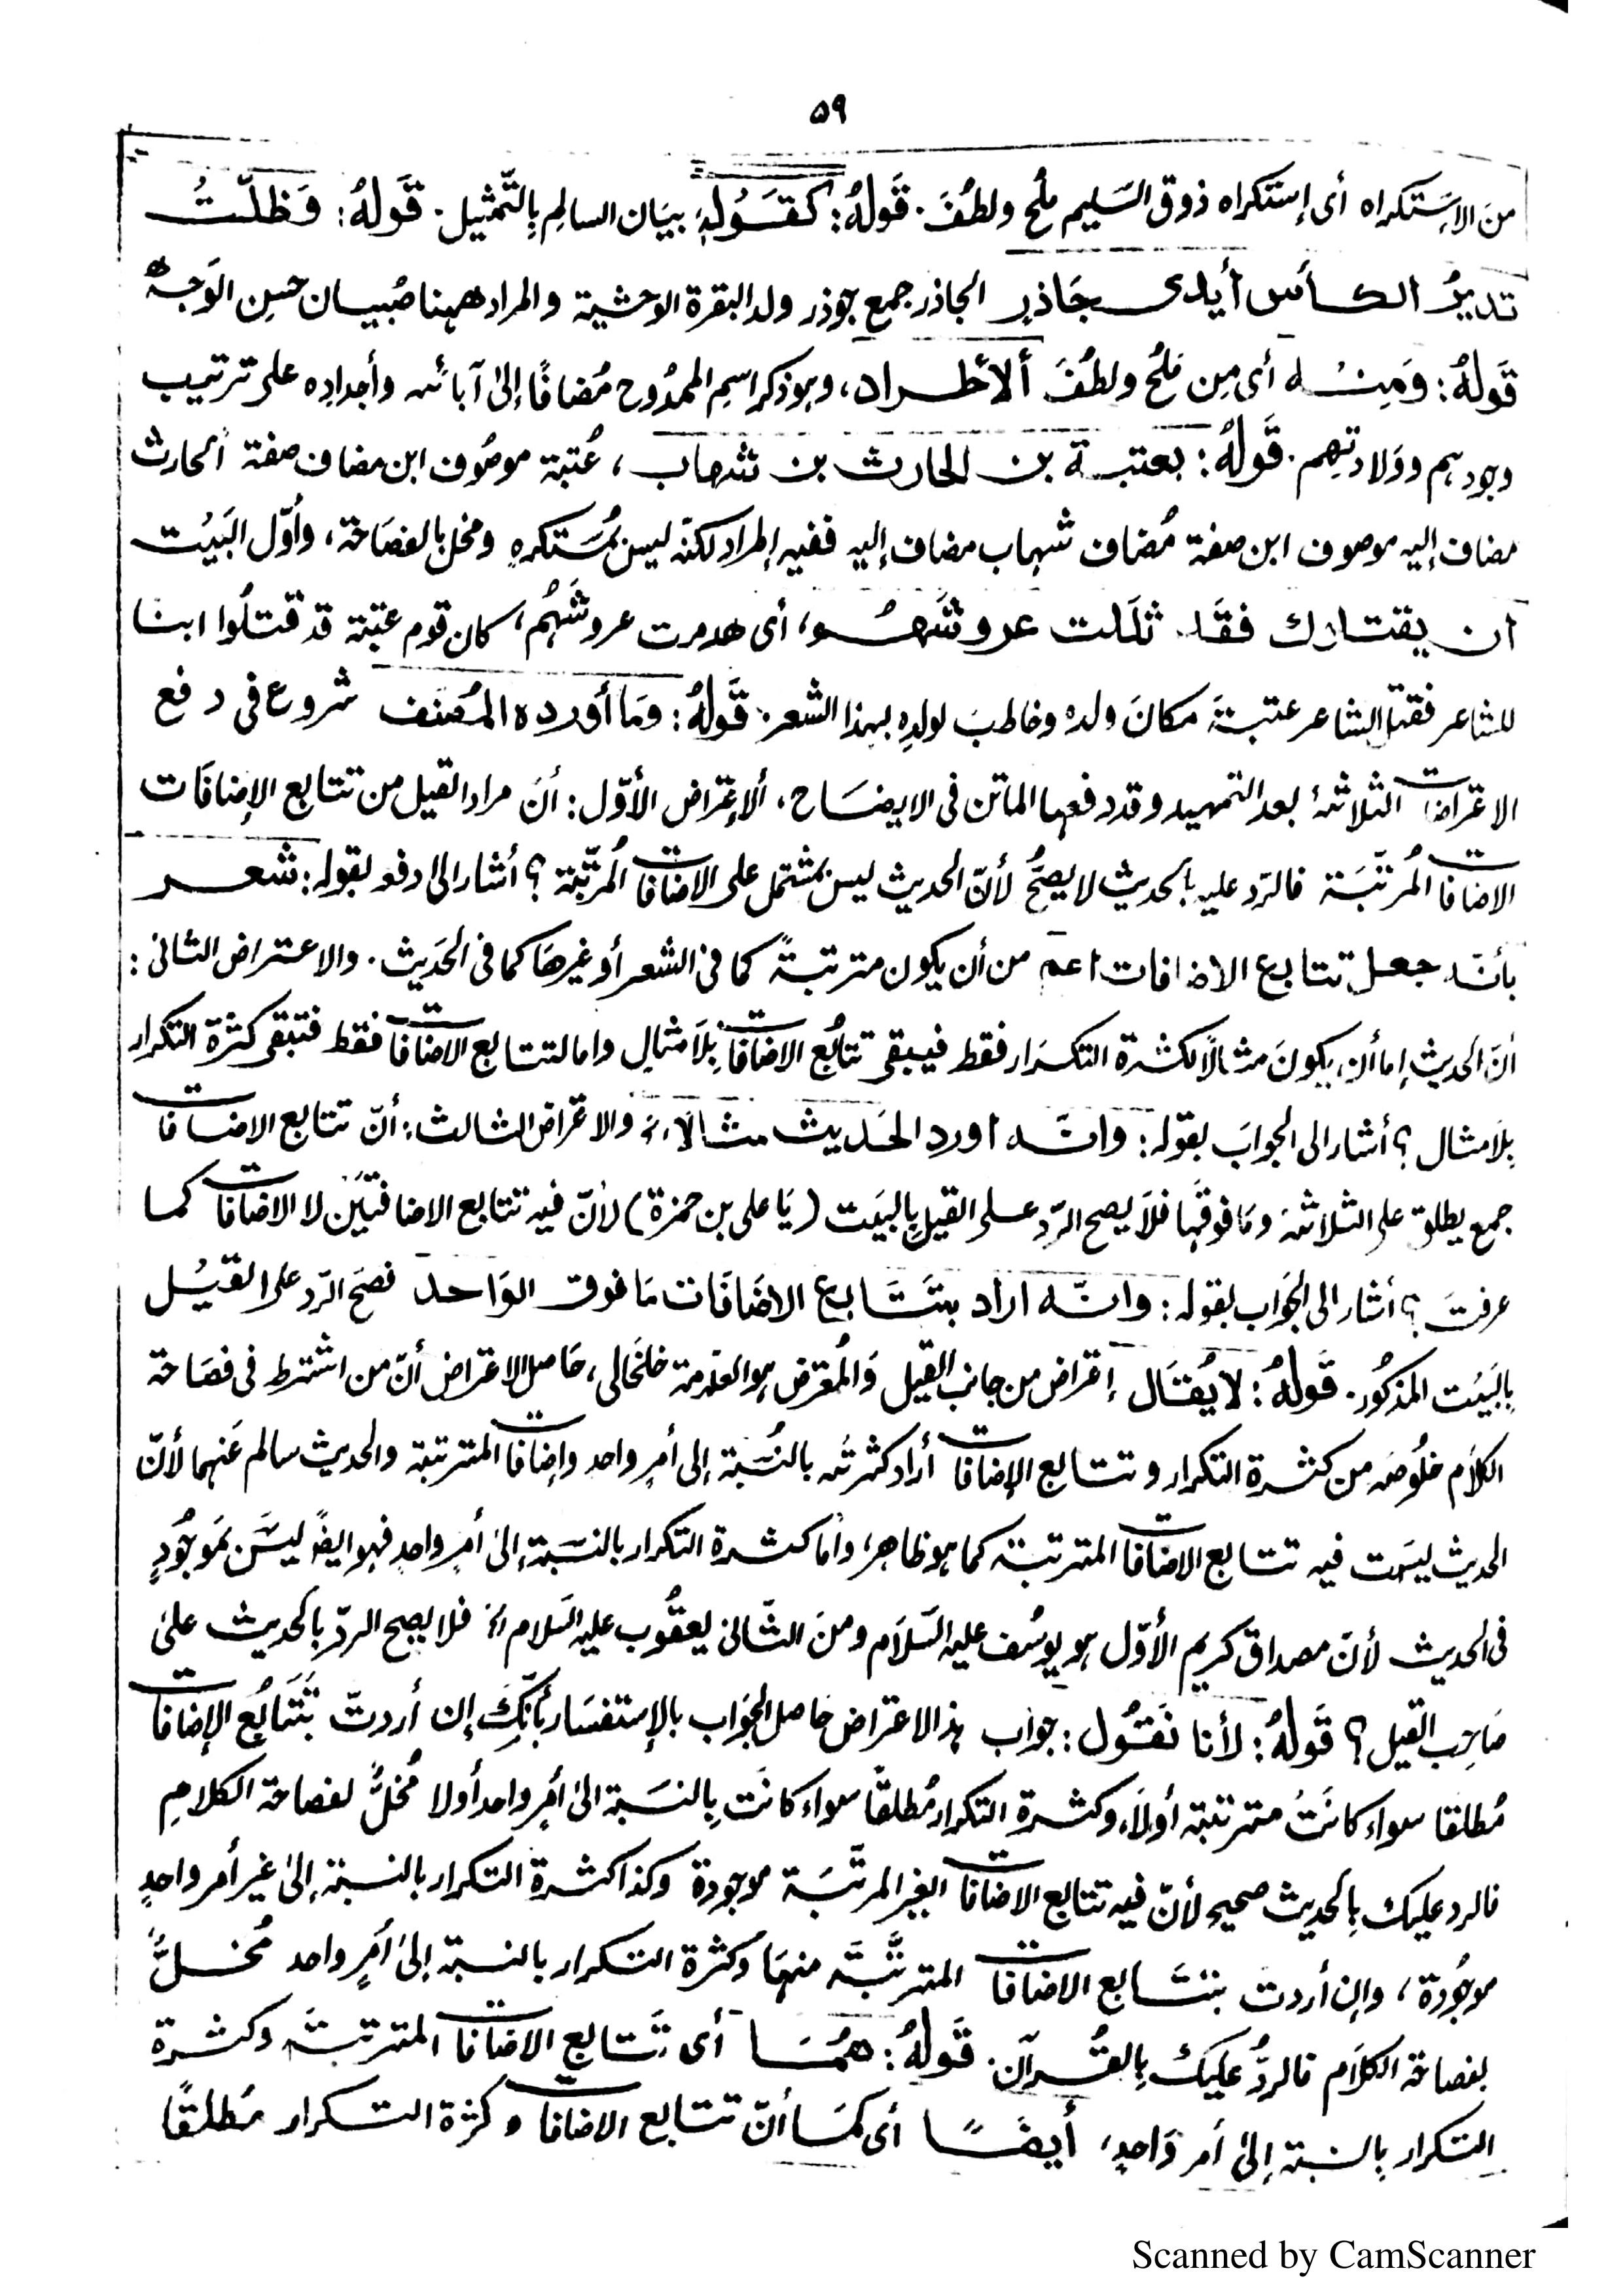 ۵۹
من الإستكراه أى إستكراه ذوق السّليم مُلح ولطُفَ. قَولهُ: كقَوْلهٖ بيَان السالِم بِالتّمثيل. قَولهُ: وَظلّتُ
تديرُ الكأس أيدى جَاذرٍ الجاذر جمع جوذر ولد البقرة الوحشية والمراد ههنا صُبيان حسِن الوَجهِ
قَولهُ: وَمِنْه أى مِن مَلحُ ولطُفَ ألاطراد، وہو ذكر اسمِ الممدُوح مُضافًا إلىٰ آبائه وأجدادِه على ترتيب
وجودہم وولادتهِم. قَولهُ: بعتبة بن الحارث بن شهاب، عُتبة موصُوف ابن مضاف صفة الحارث
مضاف إليه موصوف ابن صفة مُضاف شہاب مضاف إليه ففيه إطراد لكنّه ليس بمُستكرهٍ ومخل بالفصَاحة، وأوّل البَيْت
ان يقتلوك فقَد ثلَلت عروشَهُم، أى هدمت عروشَهُم، كان قوم عتبة قد قتلُوا ابنا
للشاعر فقتل الشاعر عتبةَ مكانَ ولدہ وخاطبَ لولدِهٖ بہذا الشعر. قَولهُ: وَمَا أورده المُصنف شروع فى دفع
الاعتراضات الثلاثة بعد التمهيد وقد دفعها الماتن فى الايضَاح، ألإعتراض الأوّل: أنّ مراد القيل من تتابع الإضافَات
الاضافات المُرتّبَة فالرّد عليه بالحديث لا يصحُّ لأنّ الحديث ليس بمشتمل على الاضافات المُرتّبة؟ أشار الىٰ دفعه بقوله: شعر
بأنّه جعل تتابع الاضافات اعم من أن يكون مترتبةً كما فى الشعر أو غيرهَا كما فى الحَديث. والاعتراض الثانى:
أنّ الحديث إما أن يكونَ مثالًا لكثرة التكرَار فقط فيبقى تتابُع الاضافات بِلَا مثالٍ واما لتتابع الاضافات فقط فتبقى كثرة التكرار
بِلَا مثال؟ أشار الى الجوابَ بقوله: وانّه اورد الحَديث مثالًا، والاعتراض الثالث: أنّ تتابع الاضافات
جمع يطلق على الثلاثة وَمَا فوقَها فلَا يصح الرّد على القيلِ بِالبيَت (يَا على بن حمزة) لأنّ فيه تتابع الاضافتيَن لا الاضافات كما
عرفتَ؟ أشار الى الجَواب بقوله: وانّه اراد بتَتَابع الاضَافَات مَا فوق الوَاحد فصَح الرّد على القيْل
بِالبيَت المذكُور. قَولهُ: لا يُقَال إعتراض من جانب القيل وَالمُعترض ہو العلّامة خلخالى، حَاصل الاعتراض أنّ من اشترط فى فصَاحة
الكلَام خلُوصَه من كثرة التكرار وتتابع الإضافات أراد كثرته بالنّسبة إلى أمرٍ واحد وإضافات المترتبة والحديث سالم عَنهما لأنّ
الحديث ليسَت فيه تتابع الاضافات المترتبة كما ہو ظاہر، وأما كثرة التكرار بالنسَبة إلىٰ أمرٍ واحدٍ فہو ايضً ليسَ بمَوجُودٍ
فى الحديث لأنّ مصداق كريم الأوّل ہو يوسُف عليه السّلَام ومنَ الثّانى يعقُوب عليه السَلام الخ فلا يصح الردّ بِالحديث علىٰ
صَاحِب القيل؟ قَولهُ: لأنا نَقُول: جواب ہذا الاعتراض حاصل الجَواب بالإستفسَار بأنّكَ إن أردتّ بِتَتَابُع الإضافات
مُطلقا سواء كانَتُ مترتبة أولَا، وكثرة التكرار مُطلقًا سواء كانَت بِالنسَبة الىٰ أمرٍ واحد أولا مُخلٌّ لفصاحة الكلامِ
فالرد عليك بِالحديث صحيح لأنّ فيه تتابع الاضافات الغير المرتّبَة موجودة وكذا كثرة التكرار بالنسبة إلىٰ غير أمر واحدٍ
موجُودة، وإن أردت بتتَابع الاضافات المترتّبَة منهَا وكثرة التكرار بالنسبة إلىٰ أمرٍ واحد مُخلٌّ
بفصاحة الكلَام فالردُّ عليكَ بِالقُرآن. قَولهُ: هُمَا أى تَتَابع الاضافات المترتبة وكثرة
التكرار بِالنسبة إلىٰ أمر وَاحدٍ، أيضًا أى كمَا أنّ تتابع الاضافات وكثرة التكرار مُطلقًا
Scanned by CamScanner